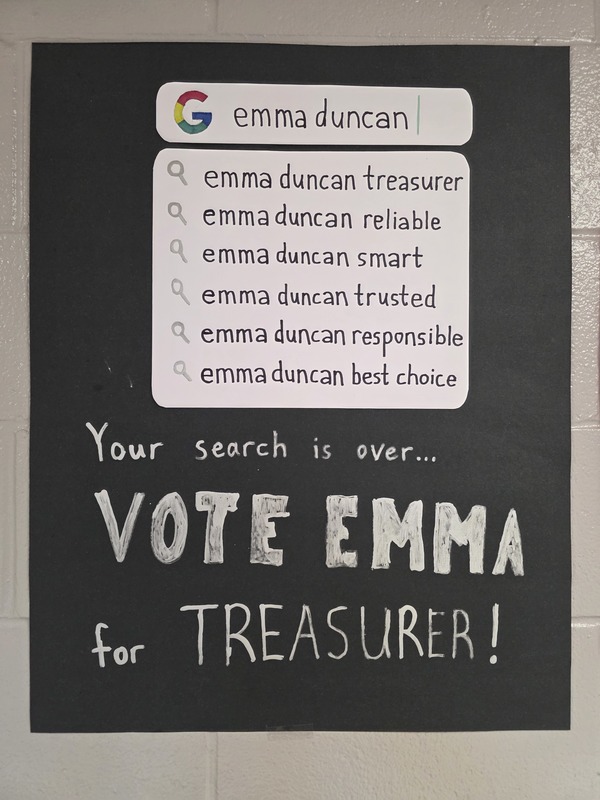 G emma duncan
emma duncan treasurer
emma duncan reliable
emma duncan smart
emma duncan trusted
emma duncan responsible
emma duncan best choice
Your search is over...
VOTE EMMA
for TREASURER!